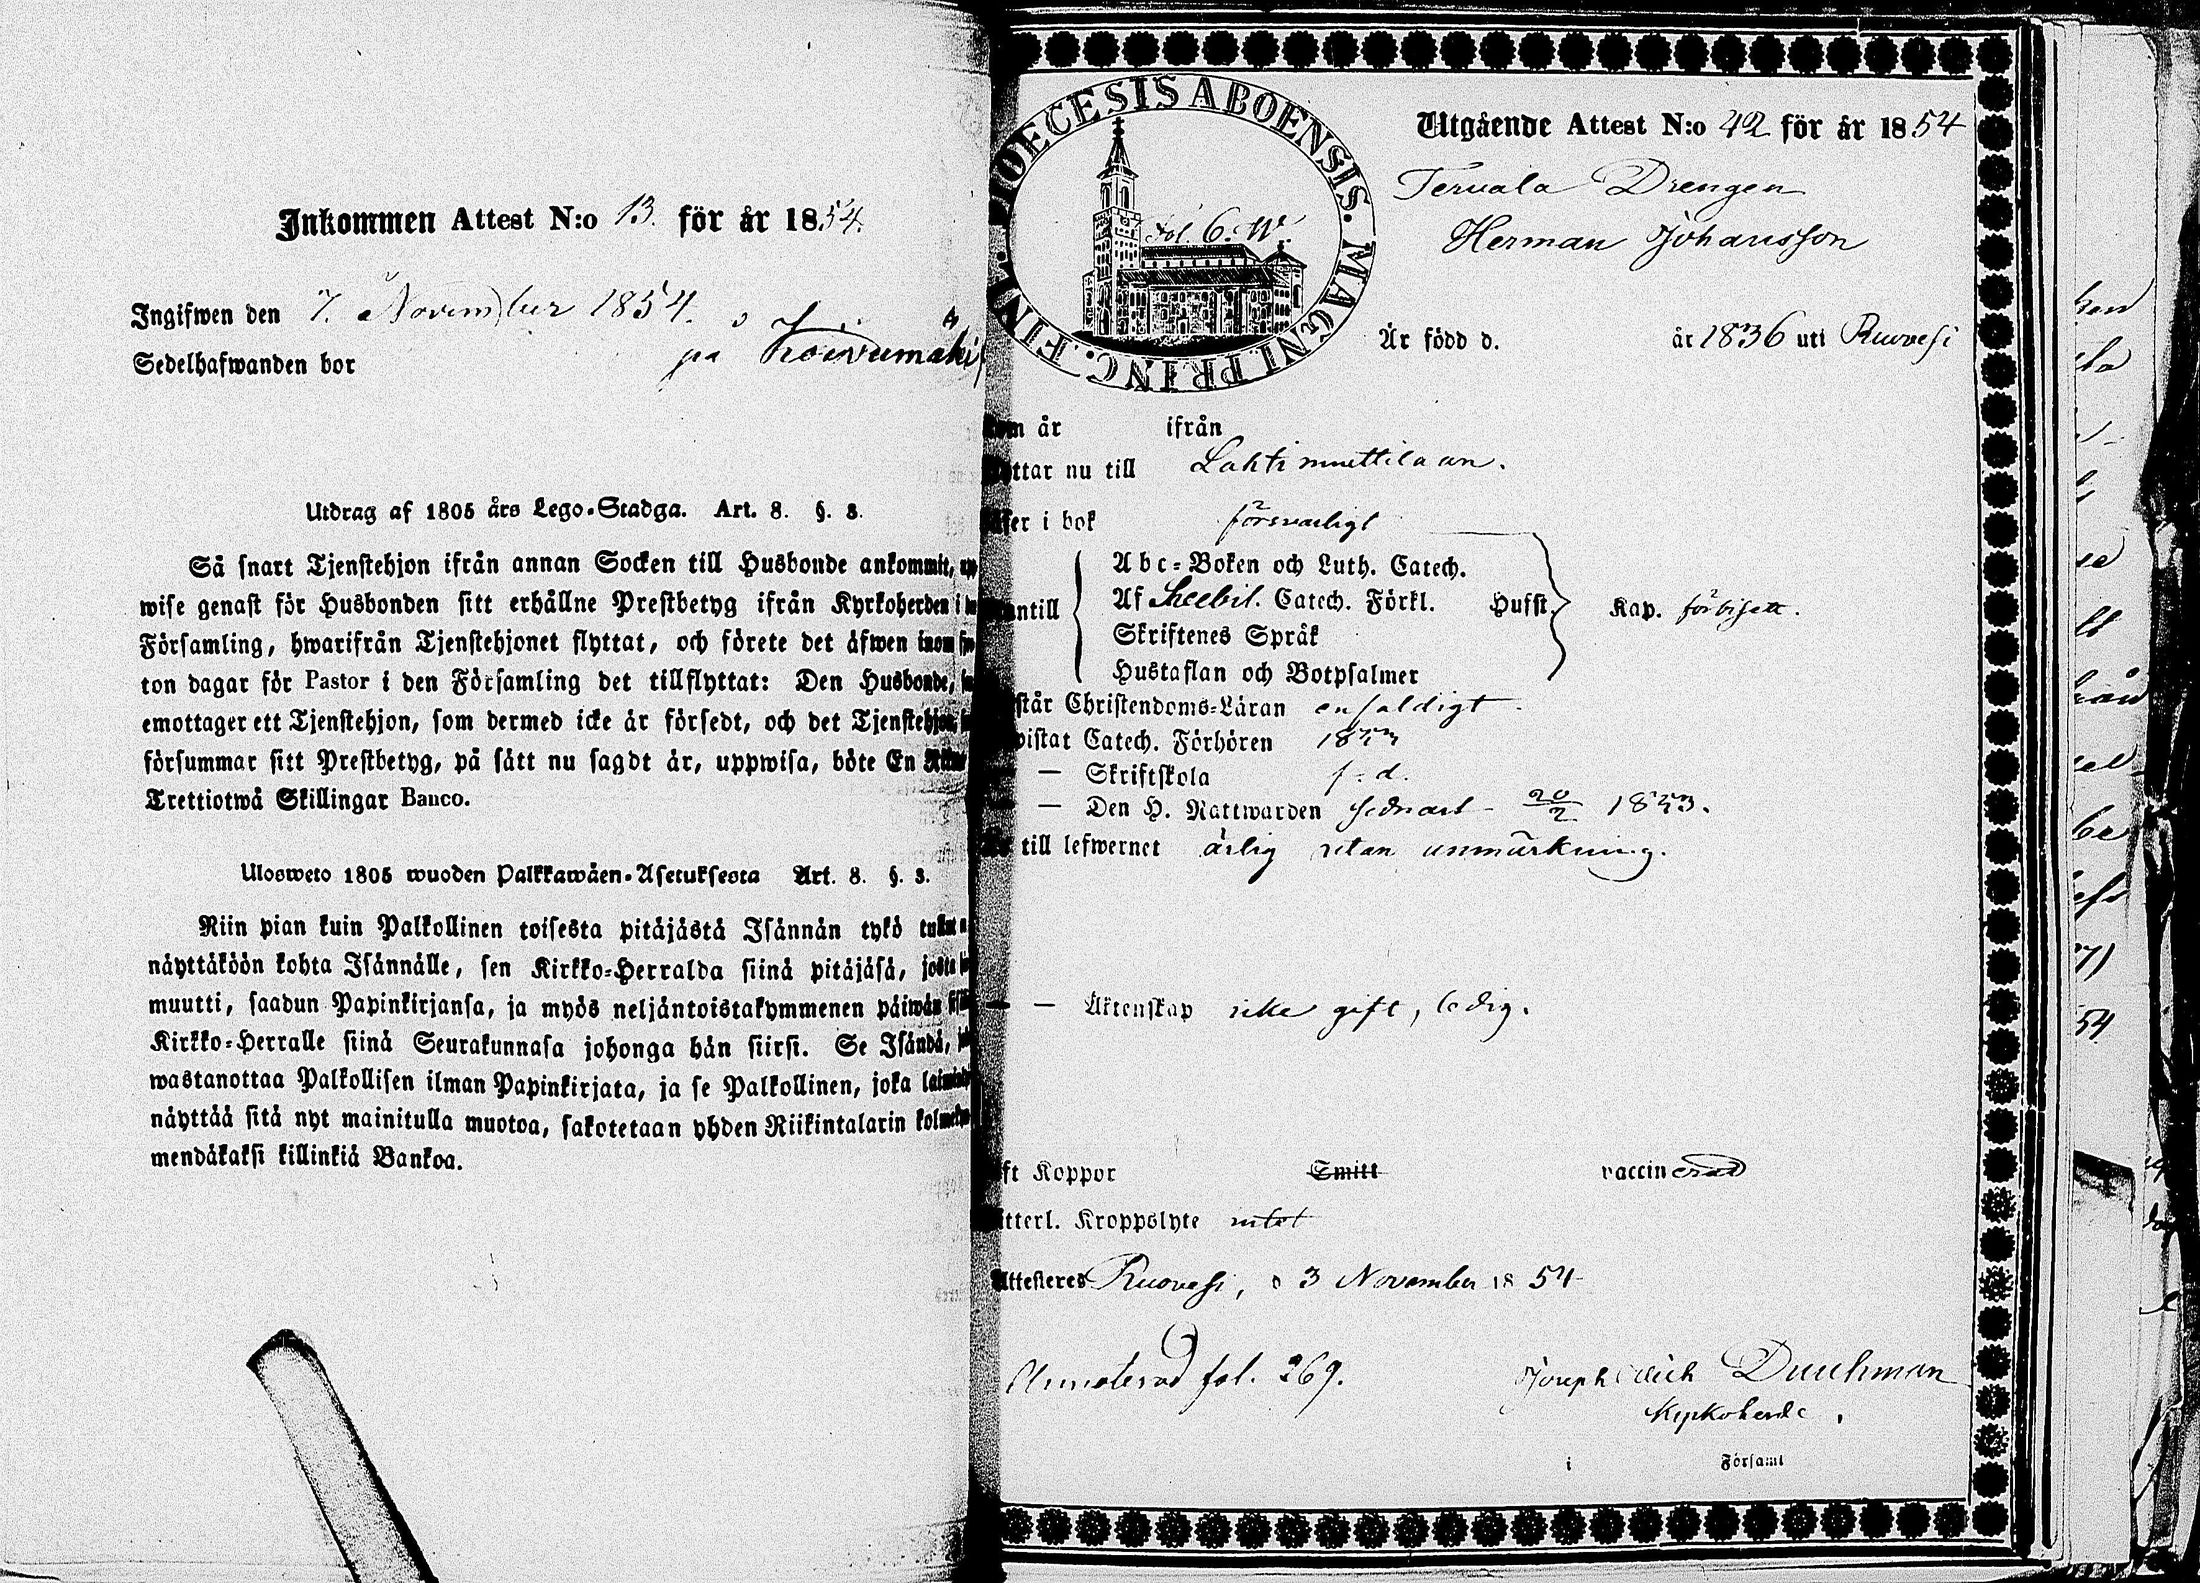 Inkommen Attest N:o 13. för år 1854.
Ingifwen den 7. November 1854.
Sedelhafwanden bor på Koivumäki
Utdrag af 1805 års Lego-Stadga. Art. 8. §. 3.
Så snart Tjenstehjon ifrån annan Socken till Husbonde ankommit,
wise genast för Husbonden sitt erhållne Prestbetyg ifrån Kyrkoherden i
Församling, hwarifrån Tjenstehjonet flyttat, och förete det äfwen inom
ton dagar för Pastor i den Församling det tillflyttat: Den Husbonde,
emottager ett Tjenstehjon, som dermed icke är försedt, och det
försummar sitt Prestbetyg, på sätt nu sagdt är, uppwisa, böte En
Trettiotwå Skillingar Banco.
Ulosweto 1805 wuoden Palkkawäen-Asetuksesta Art. 8. §. 3.
Niin pian kuin Palkollinen toisesta pitäjästä Isännän tykö
näyttäköön kohta Isännälle, sen Kirkko-Herralda siinä pitäjäsä,
muutti, saadun Papinkirjansa, ja myös neljäntoistakymmenen päiwän
Kirkko-Herralle siinä Seurakunnasa johonga hän siirsi. Se Isändä,
wastanottaa Palkollisen ilman Papinkirjata, ja se Palkollinen, joka
näyttää sitä nyt mainitulla muotoa, sakotetaan yhden Riikintalarin
mendäkaksi killinkiä Bankoa.
DIOECESIS ABOENSIS. MAGNI. PRINC. FINL.
Fol 6.
Utgående Attest N:o 42 för år 1854
Tervala Drengen
Herman Johansson
Är född d. år 1836 uti Ruovesi
år ifrån
nu till Lahti
i bok försvarligt
Abc-Boken och Luth. Catech.
Af Svebil. Catech. Förkl. Husst. Kap. förbigått.
Skriftenes Språk
Hustaflan och Botpsalmer
Christendoms-Läran enfaldigt.
Catech. Förhören 1853
— Skriftskola f. d.
— Den H. Nattwarden sednast 20/2 1853.
till lefwernet ärlig utan anmärkning.
— — Äktenskap icke gift, ledig.
Koppor Smitt vaccinerad
Kroppslyte intet
Attesteres Ruovesi, d 3 November 1854
Annoterad fol. 269.
Joseph Durchman
Kyrkoherde.
i Församl